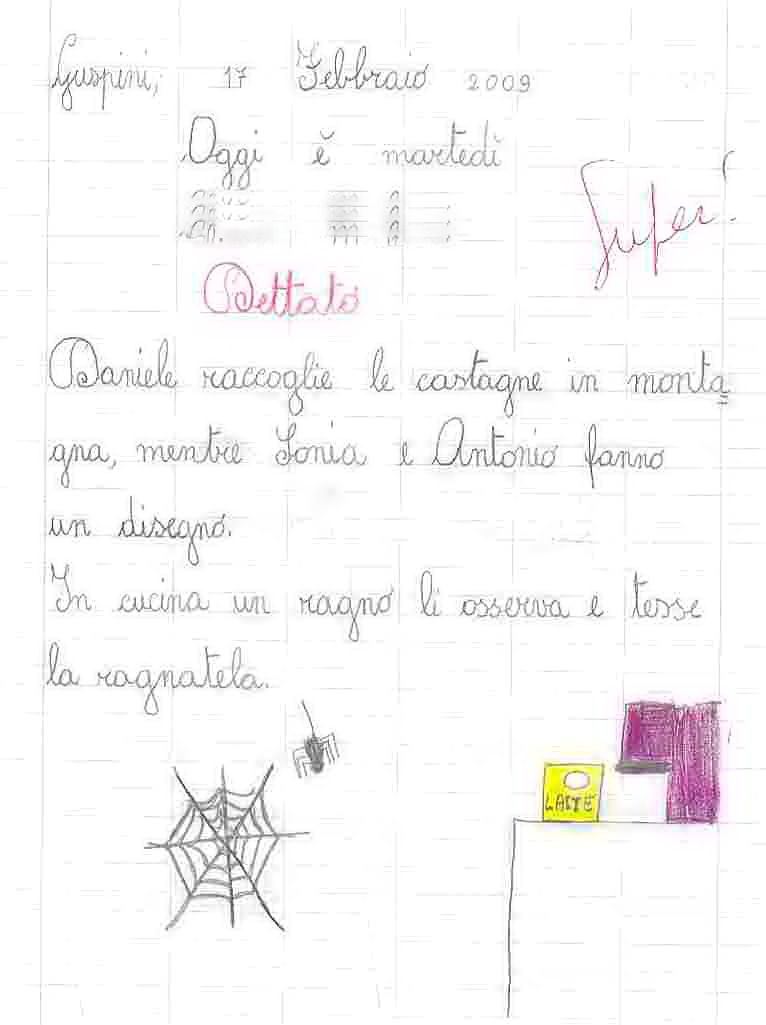 Guspini, 17 Febbraio 2009
Oggi è martedì
Super!
Dettato
Daniele raccoglie le castagne in monta=
gna, mentre Sonia e Antonio fanno
un disegno.
In cucina un ragno li osserva e tesse
la ragnatela.
LATTE